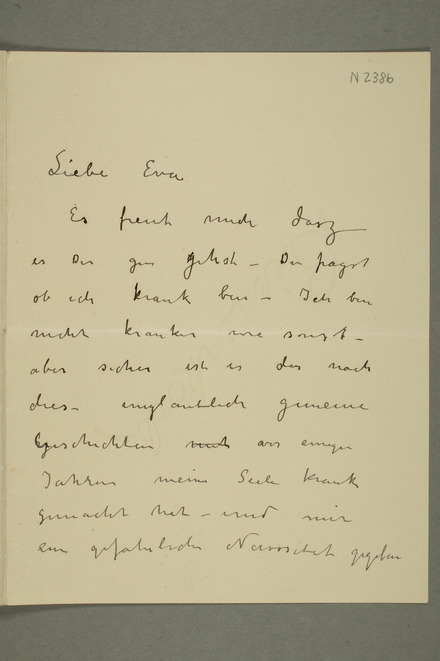 N 2386
Liebe Eva
Es freut mich dasz
es Dir gut geht – Du fragst
ob ich krank bin – Ich bin
nicht kranker wie sonst –
aber sicher ist es das noch
dies – unglaublich gemeine
Geschichten vor einigen
Jahren meine Seele krank
gemacht hat – und mir
ein gefährliche Nervositet gegeben